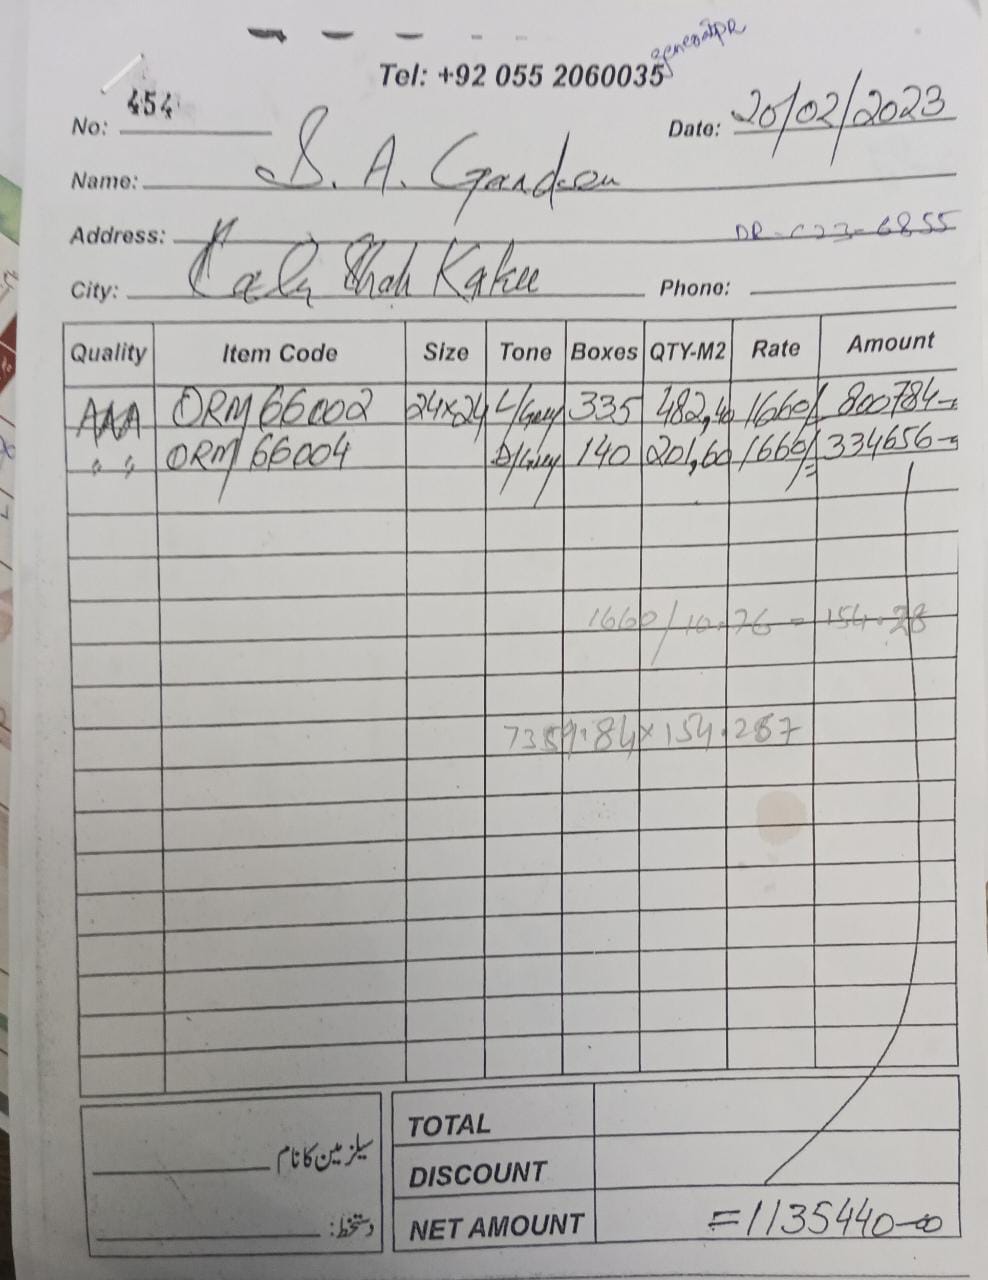 Tel: +92 055 2060035
No: 454
Date: 20/02/2023
Name: S. A. Gardson
Address: DR-C23-6855
City: Kala Shah Kaku Phone:
Quality Item Code Size Tone Boxes QTY-M2 Rate Amount
AAA ORM 66002 24x24 L/Grey 335 482,40 1660/ 800784-
" " ORM 66004 D/Grey 140 201,60 1660/= 334656-
1660/10.76 = 154.28
7359.84 x 154.287
TOTAL
سیلزمین کا نام
DISCOUNT
دستخط:
NET AMOUNT =1135440-00